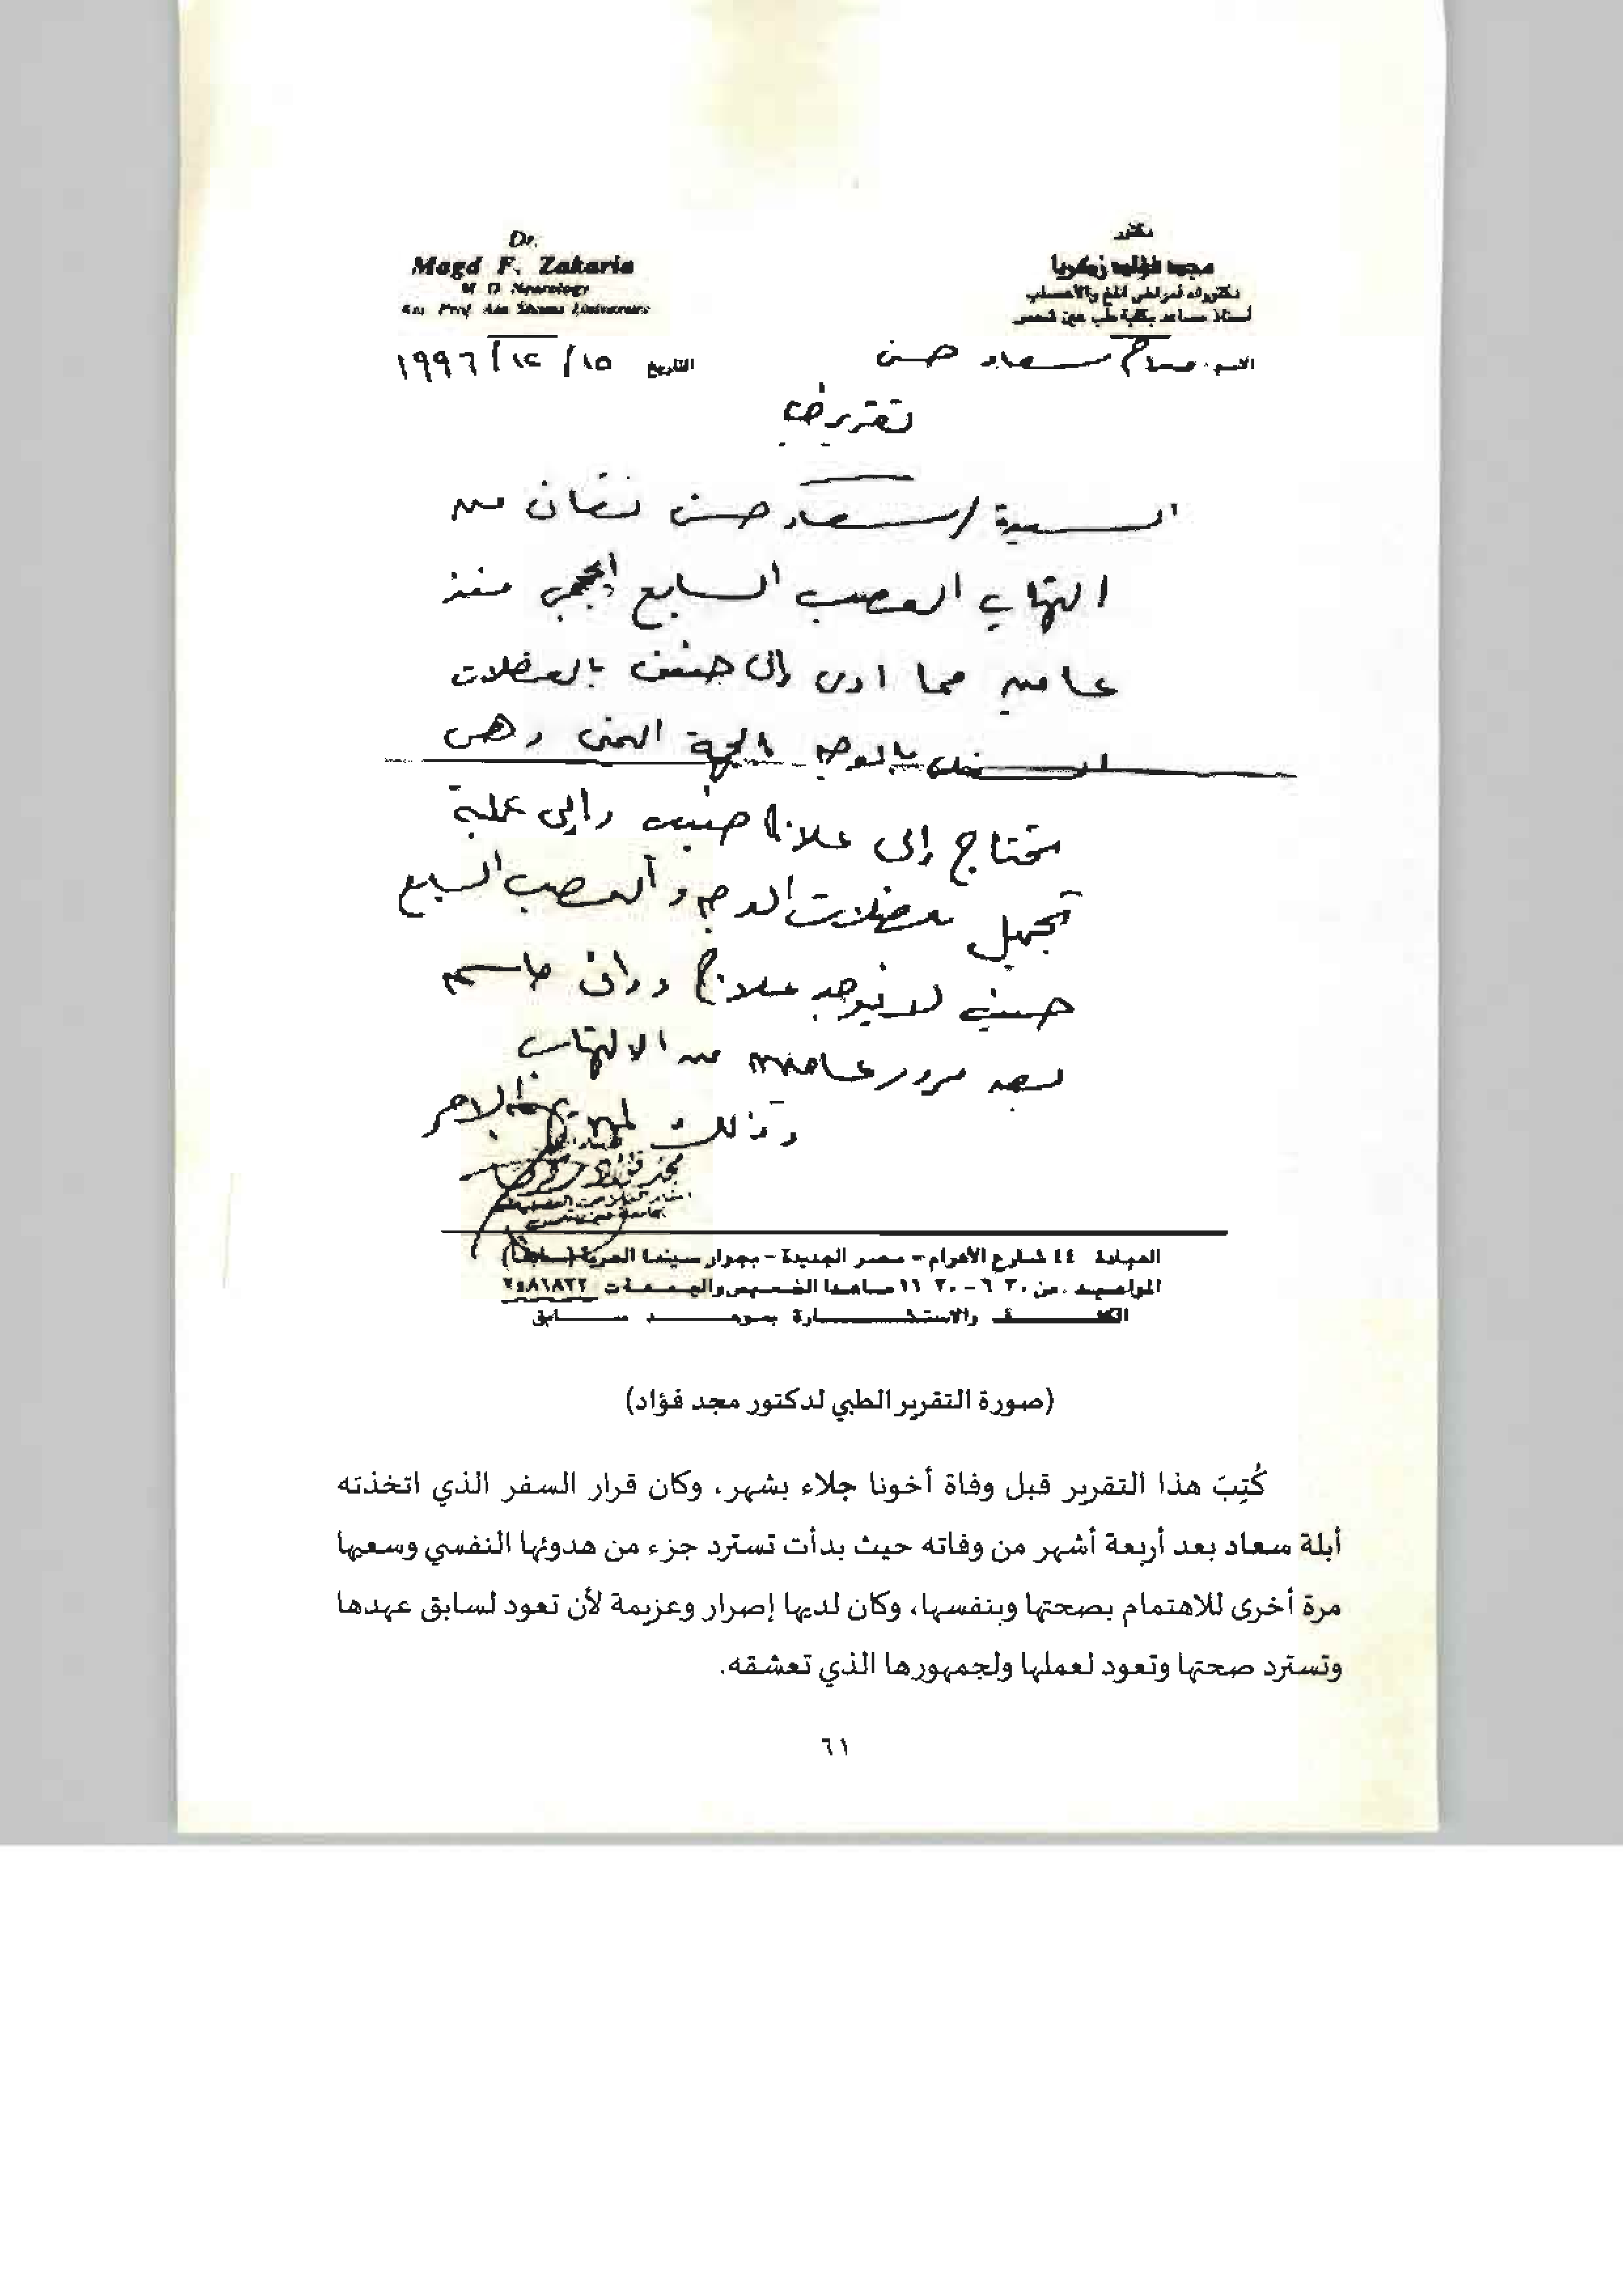 Dr.
Magd F. Zakaria
M D Neurology
Ass Prof Ain Shams University
دكتور
مجد فؤاد زكريا
دكتوراه أمراض المخ والأعصاب
أستاذ مساعد بكلية طب عين شمس
الاسم: مدام / سعاد حسن
التاريخ ١٥/ ١٢/ ١٩٩٦
تقرير طبى
السيدة / سعاد حسن تعانى من
التهاب العصب السابع منذ
عامين مما ادى إلى ضعف بالعضلات
بالوجه بالجهة اليمنى وهى
تحتاج إلى علاج وإلى عملية
تجميل لعضلات الوجه والعصب السابع
حيث لا يوجد علاج دوائى حاسم
بعد مرور عامين من الالتهاب
وذلك
العيادة ٤٤ شارع الأهرام - مصر الجديدة - بجوار سينما الحرية (سابقاً)
المواعيد من ٦.٣٠ - ١١.٣٠ ماعدا الخميس والجمعة ت ٢٥٨٦٨٢٢
الكشف والاستشارة بموعد سابق
(صورة التقرير الطبي لدكتور مجد فؤاد)
كُتِبَ هذا التقرير قبل وفاة أخونا جلاء بشهر، وكان قرار السفر الذي اتخذته
أبلة سعاد بعد أربعة أشهر من وفاته حيث بدأت تسترد جزء من هدوئها النفسي وسعيها
مرة أخرى للاهتمام بصحتها وبنفسها، وكان لديها إصرار وعزيمة لأن تعود لسابق عهدها
وتسترد صحتها وتعود لعملها ولجمهورها الذي تعشقه.
٦١